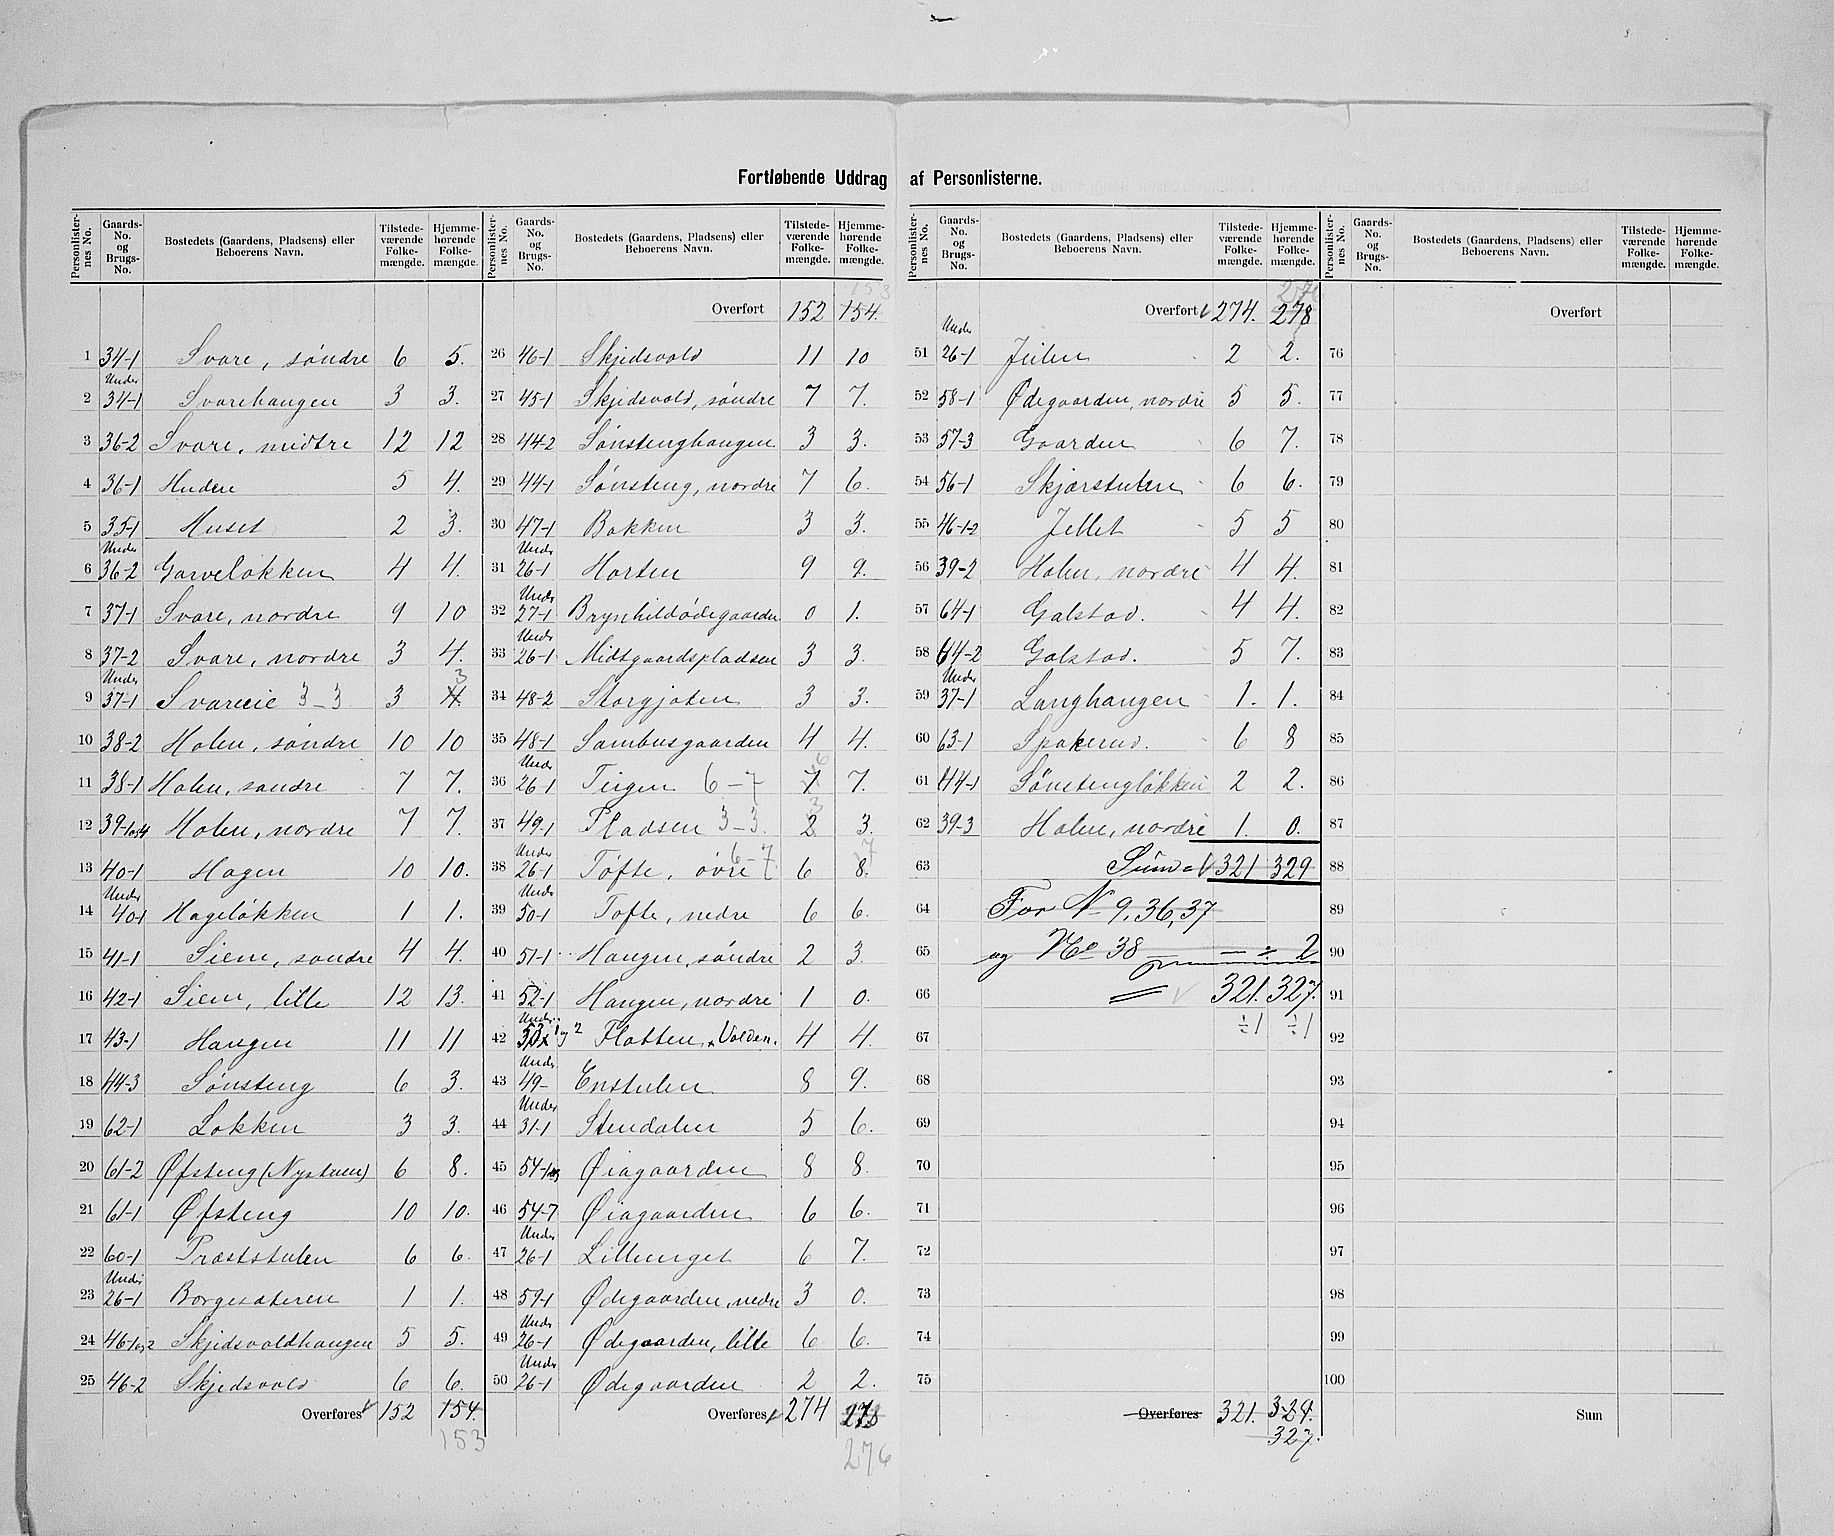 Fortløbende Uddrag af Personlisterne.
Personlisternes No. Gaards-No. og Brugs-No. Bostedets (Gaardens, Pladsens) eller Beboerens Navn. Tilstedeværende Folkemængde. Hjemmehørende Folkemængde.
1 34-1 Svare, söndre 6 5.
2 Under 34-1 Svarehaugen 3 3.
3 36-2 Svare, midtre 12 12
4 36-1 Hudere 5 4.
5 35-1 Huset 2 3.
6 Under 36-2 Garveløkken 4 4.
7 37-1 Svare, nordre 9 10
8 37-2 Svare, nordre 3 4.
9 Under 37-1 Svareeie 3-3 3 4 3
10 38-2 Holen, söndre 10 10
11 38-1 Holen, söndre 7 7.
12 39-1og4 Holen, nordre 7 7.
13 40-1 Hagen 10 10.
14 Under 40-1 Hageløkken 1 1.
15 41-1 Siem, søndre 4 4.
16 42-1 Siem, lille 12 13.
17 43-1 Haugen 11 11
18 44-3 Sønsteng 6 3.
19 62-1 Løkken 3 3.
20 61-2 Øfsteng (Nystuen) 6 8.
21 61-1 Øfsteng 10 10.
22 60-1 Præststulen 6 6.
23 Under 26-1 Borgesæteren 1 1.
24 46-1og2 Skjedsvoldhaugen 5 5.
25 46-2 Skjedsvold 6 6.
Overføres 152 154.
153
Personlisternes No. Gaards-No. og Brugs-No. Bostedets (Gaardens, Pladsens) eller Beboerens Navn. Tilstedeværende Folkemængde. Hjemmehørende Folkemængde.
153
Overført 152 154.
26 46-1 Skjedsvold 11 10
27 45-1 Skjedsvold, søndre 7 7.
28 44-2 Sønstenghaugen 3 3.
29 44-1 Sønsteng, nordre 7 6.
30 47-1 Bakken 3 3.
31 Under 26-1 Horten 9 9.
32 Under 27-1 Brynhildødegaarden 0 1.
33 Under 26-1 Midtgaardspladsen 3 3.
34 48-2 Storgjoten 3 3.
35 48-1 Sambusgaarden 4 4.
36 Under 26-1 Teigen 6-7 7 6 7.
37 49-1 Pladsen 3-3. 2 3 3.
38 Under 26-1 Tøfte, øvre 6-7 6 8. 7
39 Under 50-1 Tøfte, nedre 6 6.
40 51-1 Haugen, søndre 2 3.
41 52-1 Haugen, nordre 1 0.
42 Under 53 1 og 2 Flatten x Volden. 4 4.
43 Under 49- Enstulen 8 9.
44 Under 31-1 Stendalen 5 6.
45 54-1 Øiagaarden 8 8.
46 54-7 Øiagaarden 6 6.
47 Under 26-1 Lillenget 6 7.
48 59-1 Ødegaarden, nedre 3 0.
49 Under 26-1 Ødegaarden, lille 6 6.
50 Under 26-1 Ødegaarden 2 2.
Overføres 274 278
276
Personlisternes No. Gaards-No. og Brugs-No. Bostedets (Gaardens, Pladsens) eller Beboerens Navn. Tilstedeværende Folkemængde. Hjemmehørende Folkemængde.
276
Overført 274. 278
51 Under 26-1 Jeilen 2 2.
52 58-1 Ødegaarden, nordre 5 5.
53 57-3 Gaarden 6 7.
54 56-1 Skjærstulen 6 6.
55 46-1-2 Jellet 5 5
56 39-2 Holen, nordre 4 4.
57 64-1 Galstad. 4 4.
58 64-2 Galstad. 5 7.
59 Under 37-1 Langhaugen 1. 1.
60 63-1 Spakerud. 6 8
61 44-1 Sønstengløkken 2 2.
62 39-3 Holen, nordre 1. 0.
63 Sum = 321 329
64 For No 9, 36, 37
65 og No 38 — ÷ 2
66 321. 327.
67 ÷1 ÷1
68
69
70
71
72
73
74
75
Overføres 321. 329.
327.
Personlisternes No. Gaards-No. og Brugs-No. Bostedets (Gaardens, Pladsens) eller Beboerens Navn. Tilstedeværende Folkemængde. Hjemmehørende Folkemængde.
Overført
76
77
78
79
80
81
82
83
84
85
86
87
88
89
90
91
92
93
94
95
96
97
98
99
100
Sum